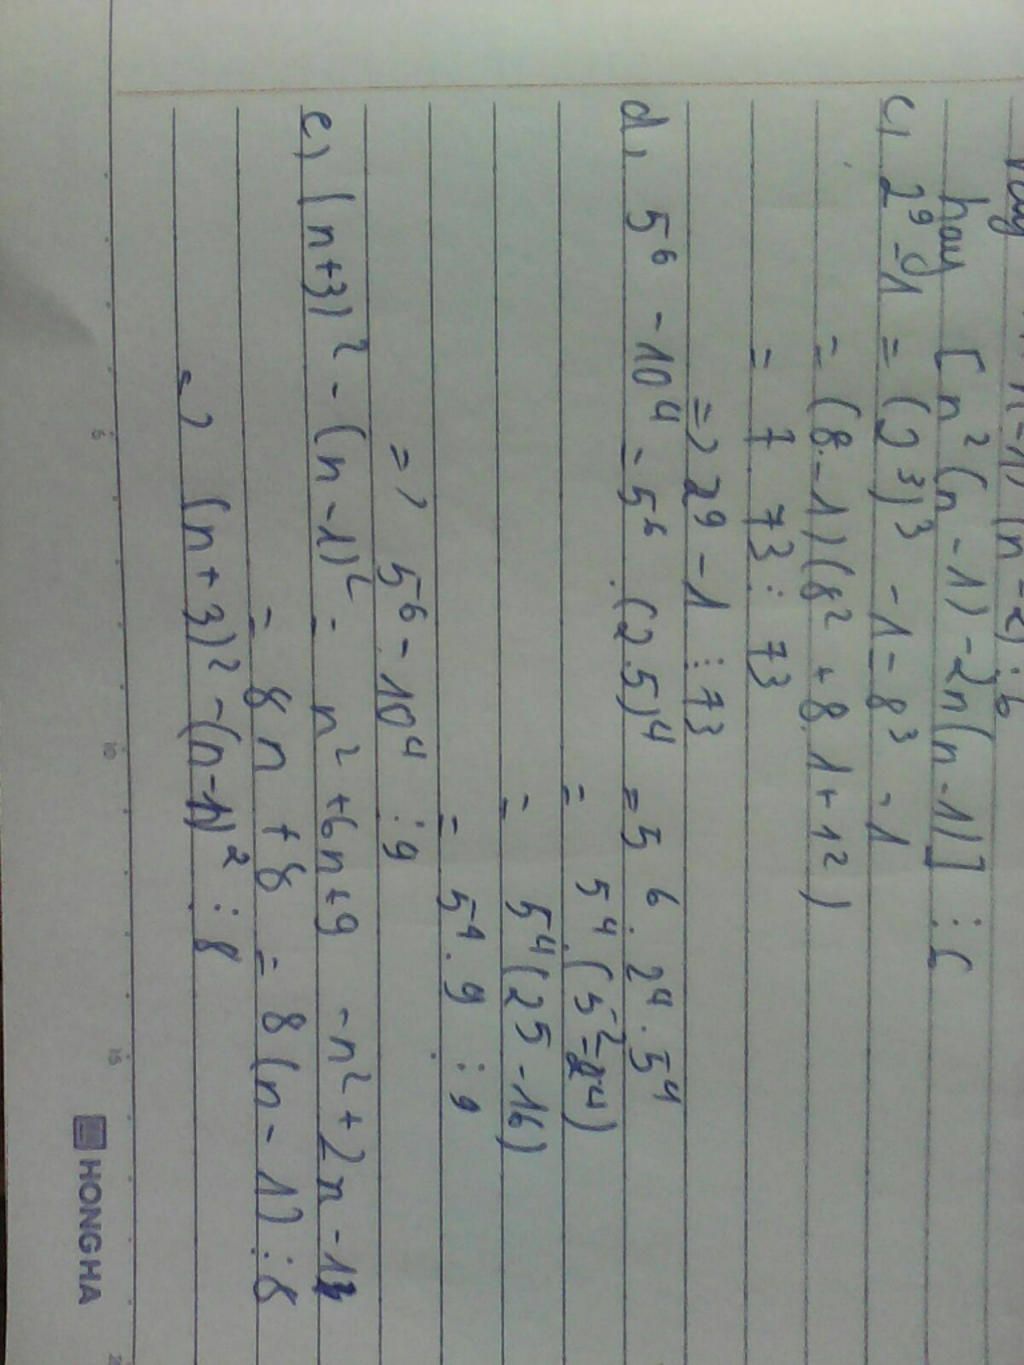 n-1) (n-2) ⋮ 6
hay [n² (n - 1) - 2n(n - 1)] ⋮ 6
c, 2⁹ - 1 = (2³)³ - 1 = 8³ - 1
= (8 - 1) (8² + 8 . 1 + 1²)
= 7 . 73 ⋮ 73
=> 2⁹ - 1 ⋮ 73
d, 5⁶ - 10⁴ = 5⁶ . (2.5)⁴ = 5⁶ . 2⁴ . 5⁴
= 5⁴ . (5² - 2⁴)
= 5⁴ (25 - 16)
= 5⁴ . 9 ⋮ 9
=> 5⁶ - 10⁴ ⋮ 9
e, (n+3)² - (n - 1)² = n² + 6n + 9 - n² + 2n - 1
= 8n + 8 = 8 (n - 1) ⋮ 8
=> (n + 3)² - (n - 1)² ⋮ 8
5 10 15
HONG HA